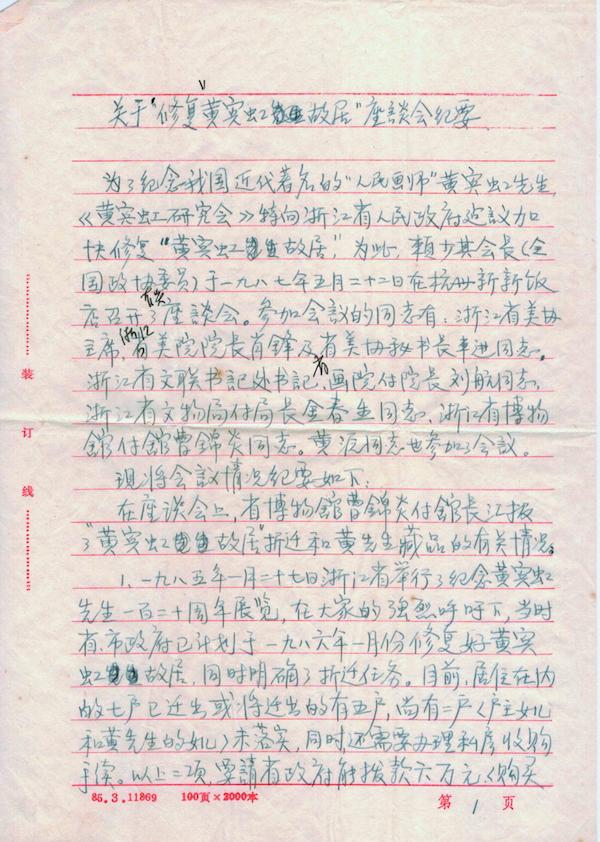 关于“修复黄宾虹故居”座談会纪要
为了纪念我国近代著名的“人民画师”黄宾虹先生,
《黄宾虹研究会》特向浙江省人民政府建议加
快修复“黄宾虹故居”,为此,赖少其会长(全
国政协委员)于一九八七年五月二十二日在杭州新新饭
店召开了座談会。参加会议的同志有:浙江省美协
主席,浙江美院院长肖锋及省美协秘书长 进同志。
浙江省文联书记处书记、省画院付院长刘航同志,
浙江省文物局付局长金春生同志、浙江省博物
館付館曹錦炎同志。黄 同志也参加了会议。
现将会议情况纪要如下:
在座谈会上,省博物館曹錦炎付館長汇报
了“黄宾虹故居”折迁和黄先生藏品的有关情况。
1、一九八五年一月二十七日浙江省举行了纪念黄宾虹
先生一百二十周年展览,在大家的强烈呼吁下,当时
省、市政府已计划于一九八六年一月份修复好黄宾
虹故居,同时明确了折迁任务。目前,居住在内
的七户已迁出或将迁出的有五户,尚有二户(户主女儿
和黄先生的女儿)未落实,同时还需要办理私房收购
手续。以上二项,要請省政府能拨款六万元(购买
装
订
线
85.3.11869 100页×2000本
第 1 页